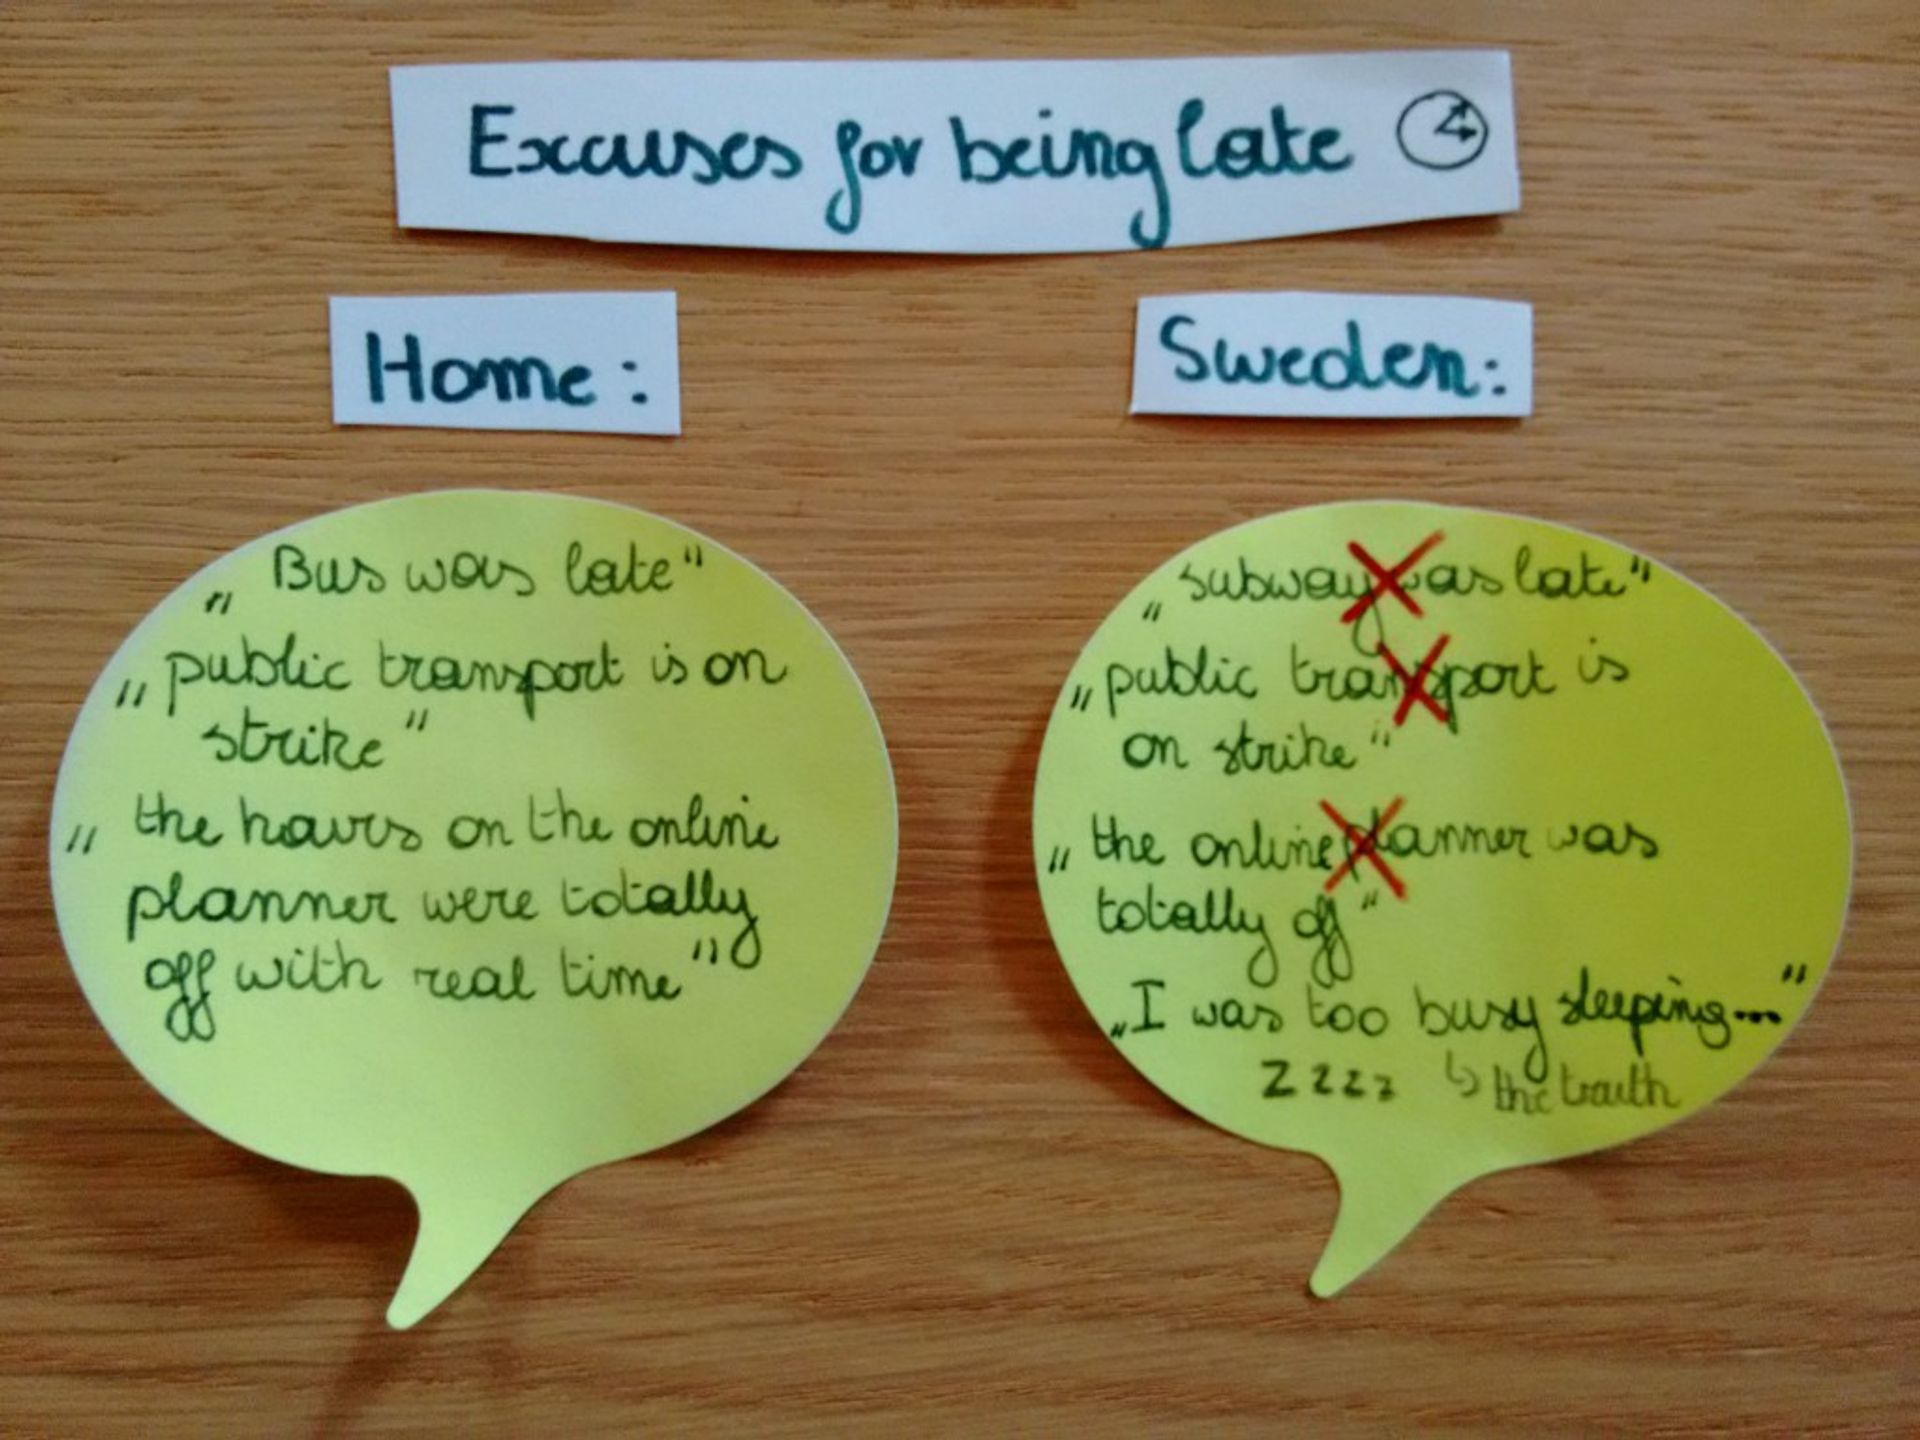 Excuses for being late
Home:
„Bus was late"
„public transport is on
strike"
„the hours on the online
planner were totally
off with real time"
Sweden:
„subway was late"
„public transport is
on strike"
„the online planner was
totally off"
„I was too busy sleeping..."
zzzz ↳ the truth